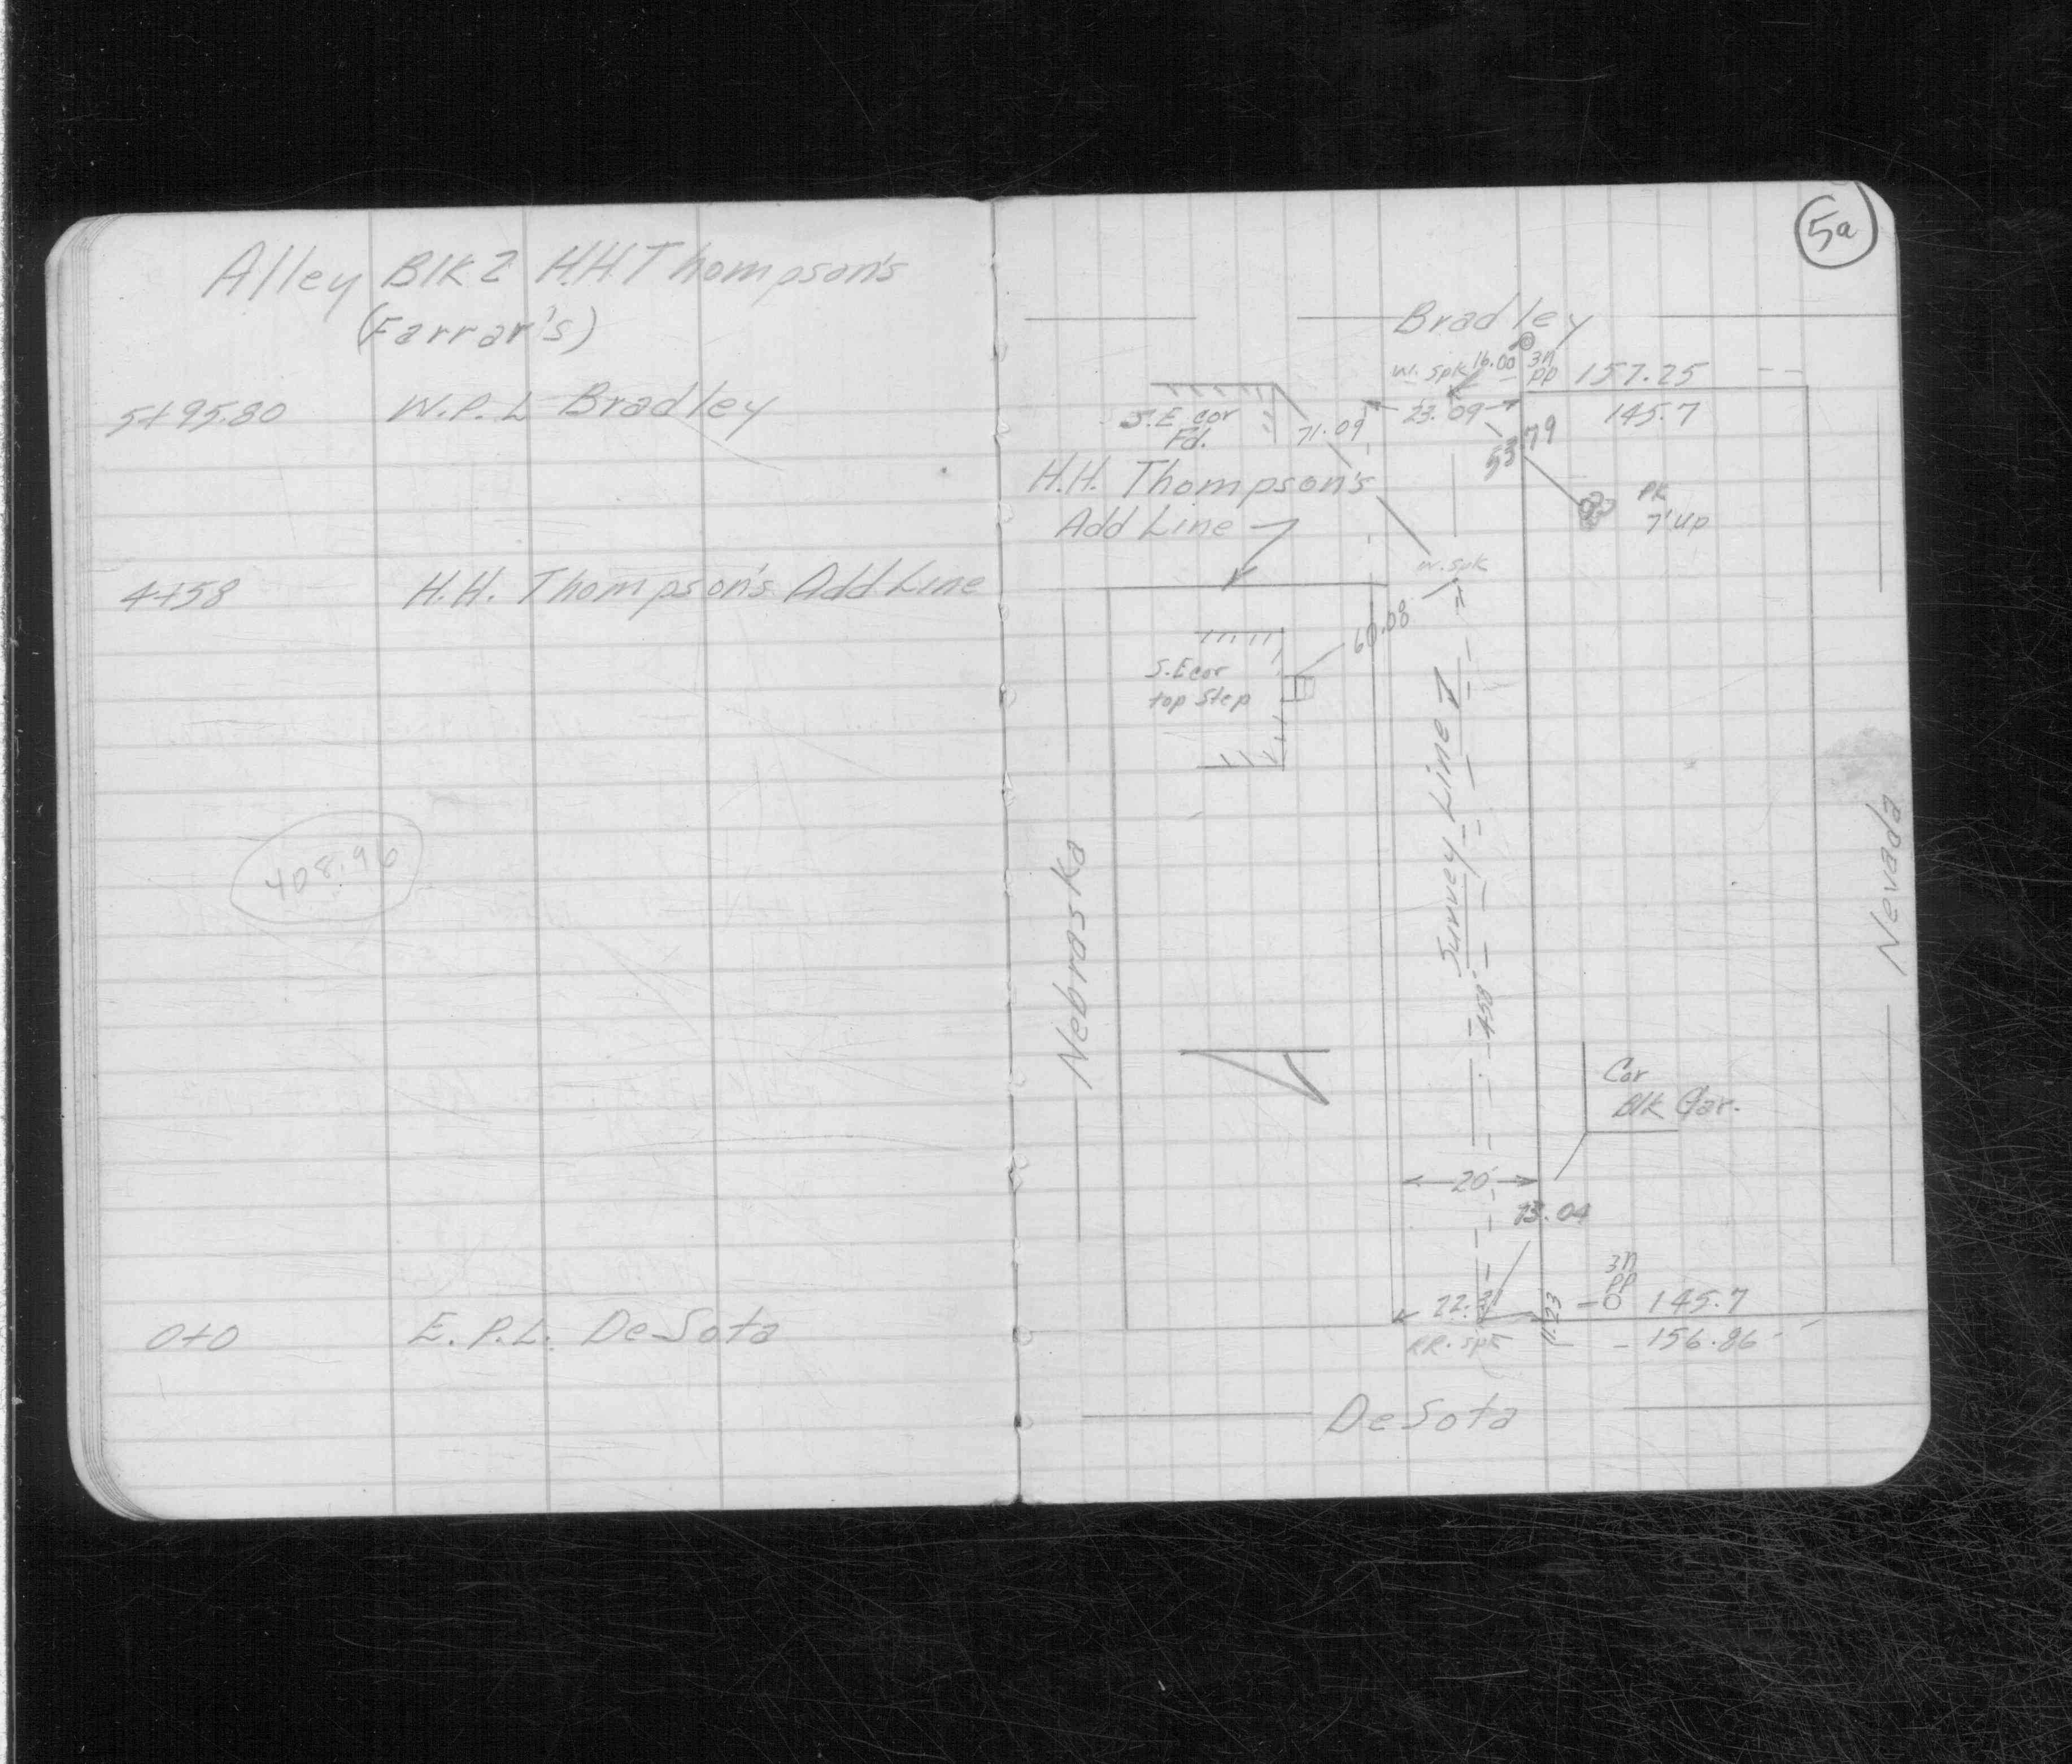 Alley Blk 2 H.H Thompson's
(Farrar's)
5+95.80 W.P.L Bradley
4+58 H.H. Thompson's Add Line
408.96
0+0 E.P.L. DeSota
5a
Bradley
W. Spk 16.00 3n
PP 157.25
S.E cor
Fd.
71.09
23.09
145.7
53.79
H.H. Thompson's
Add Line
PK
7' up
W. Spk
60.08
S.E cor
top Step
Survey Line
Nebraska
Nevada
458'
Cor
Blk Gar.
20'
13.04
3n
PP
145.7
11.23
RR. Spk
156.86
DeSota